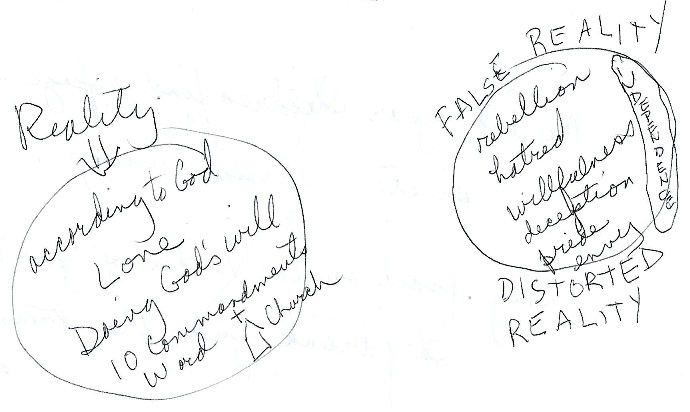 Reality
according to God
Love
Doing God's will
10 Commandments
Word + Church
FALSE REALITY
rebellion
hatred
willfulness
deception
pride
envy
INDEPENDENCE
DISTORTED
REALITY